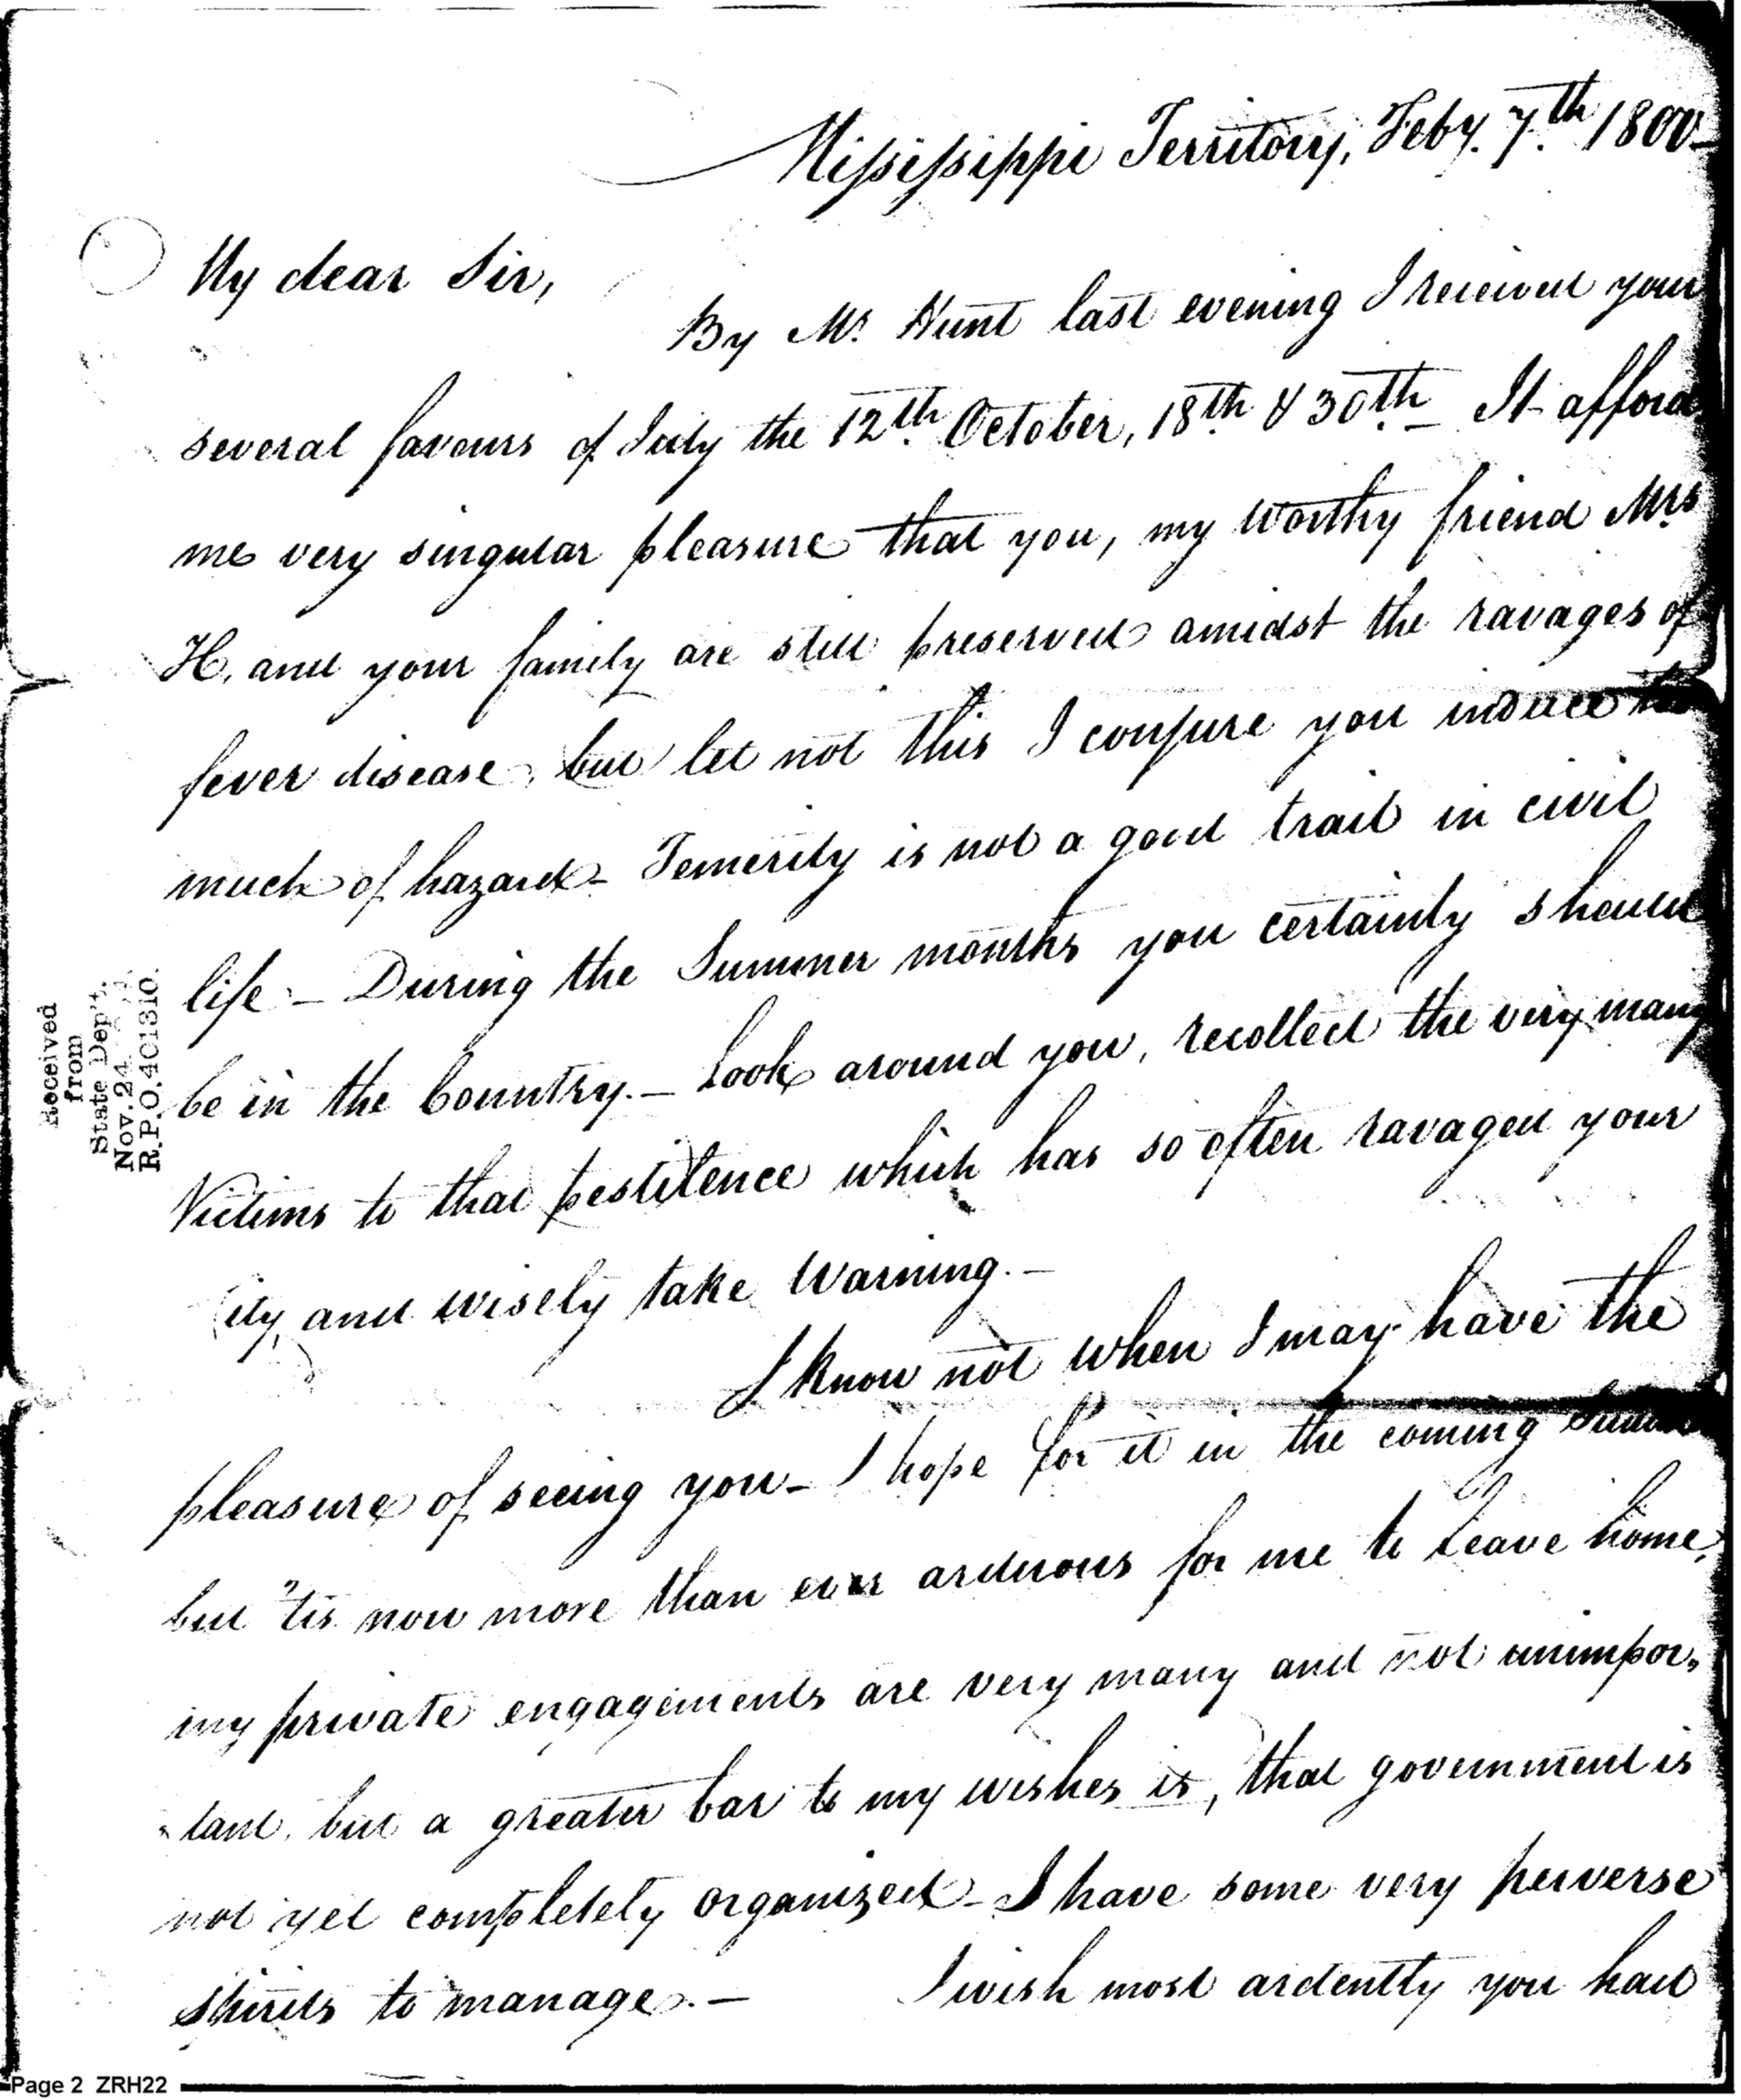 Mississippi Territory, Feby. 7.th 1800
My dear Sir,
By Mr. Hunt last evening I received your
several favours of July the 12th. October, 18th. & 30th. — It afford
me very singular pleasure that you, my worthy friend Mrs
H. and your family are still preserved amidst the ravages of
fever disease, but let not this I conjure you induce
much of hazard — Temerity is not a good trait in civil
life — During the Summer months you certainly should
be in the Country. — Look around you, recollect the very many
Victims to that pestilence which has so often ravaged your
City, and wisely take Warning. —
I know not when I may have the
pleasure of seeing you — I hope for it in the coming
but 'tis now more than ever arduous for me to leave home,
my private engagements are very many and not unimpor„
„tant, but a greater bar to my wishes is, that government is
not yet completely organized — I have some very perverse
Spirits to manage. — I wish most ardently you had
Received
from
State Dep't.
Nov. 24
R.P.O. 401310.
Page 2 ZRH22